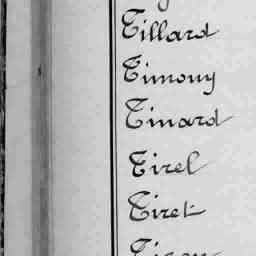 Tillard
Timony
Tinard
Tirel
Tiret